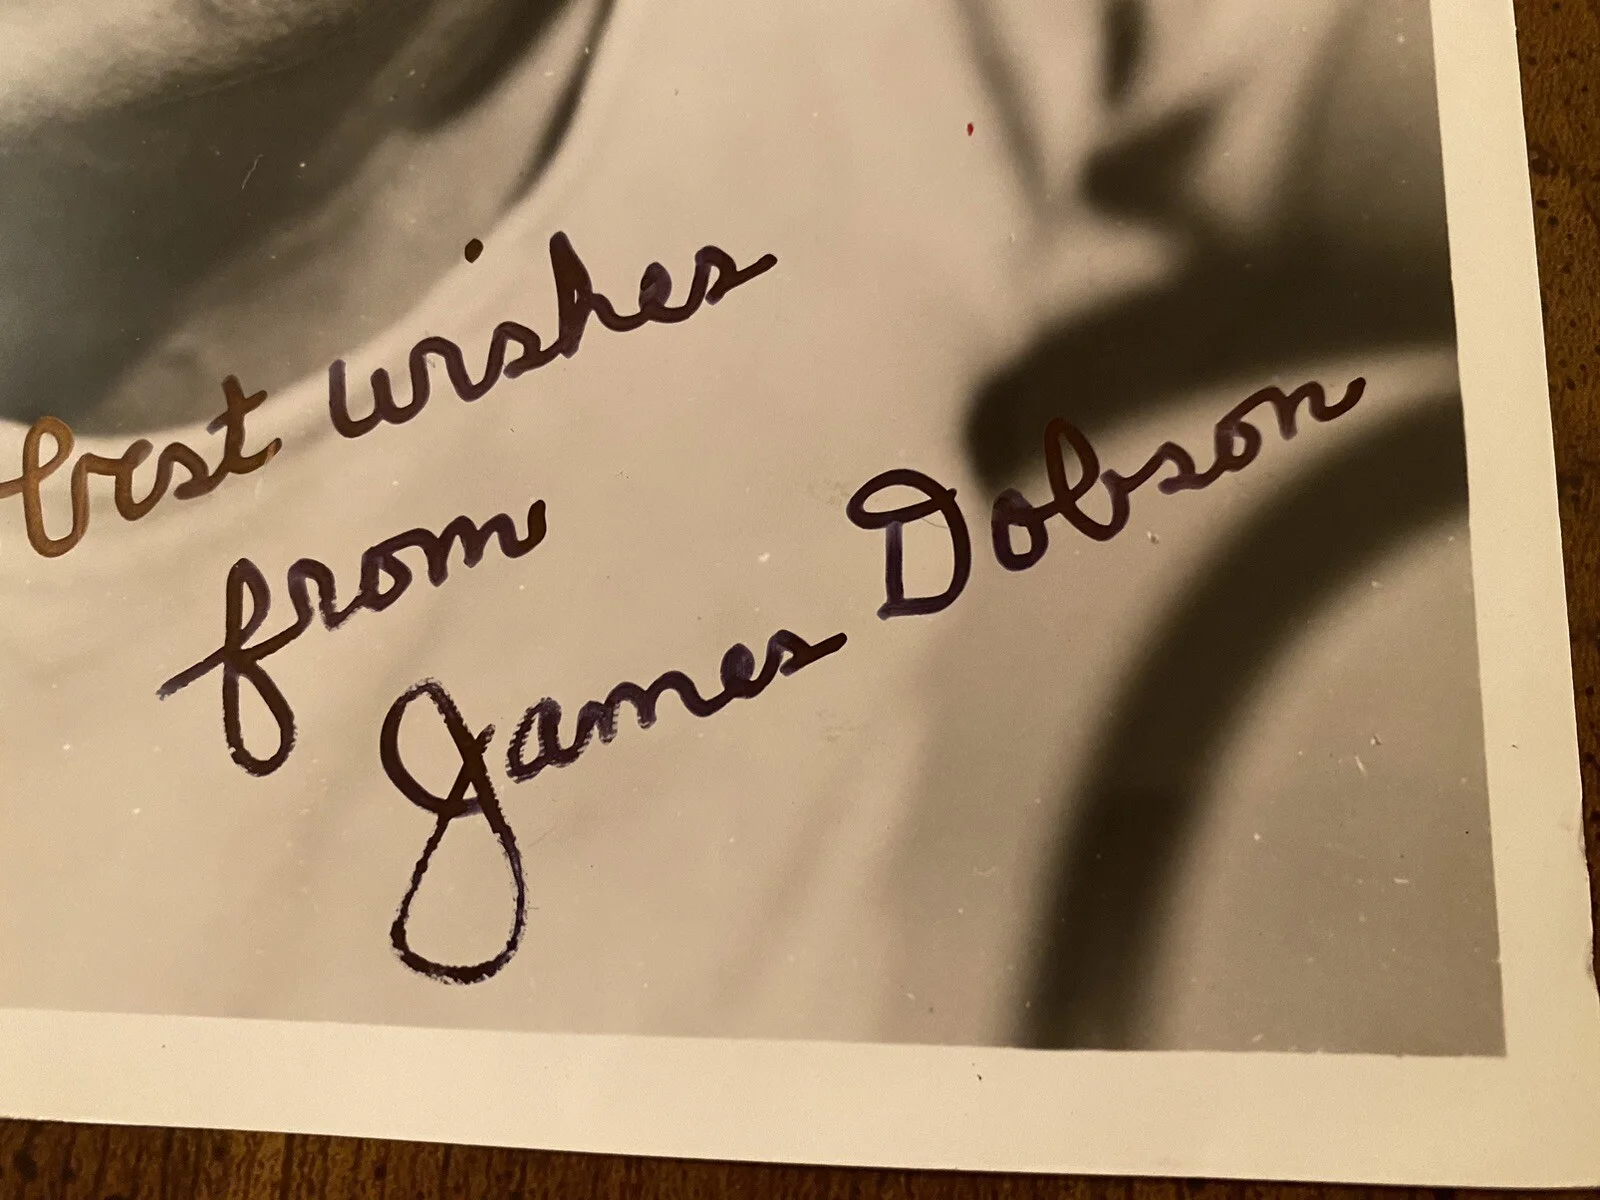 best wishes
from
James Dobson